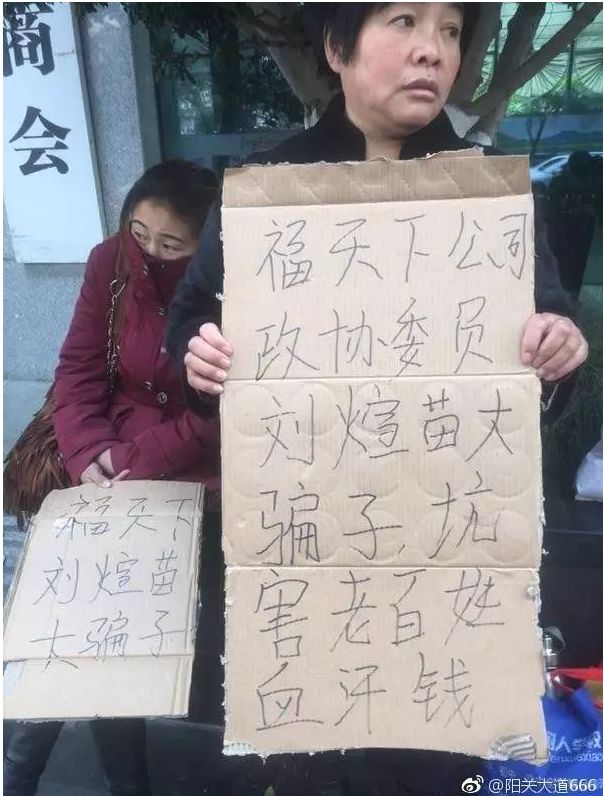 商
会
福天下公司
政协委员
刘煊苗大
骗子,坑
害老百姓
血汗钱
福天下
刘煊苗
大骗子
@阳关大道666